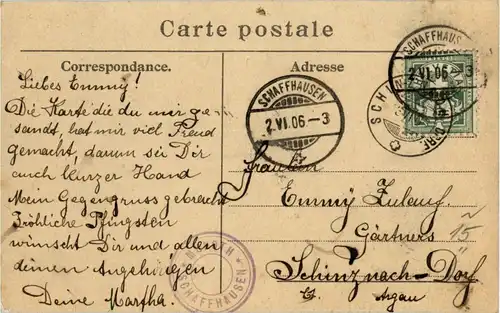 Carte postale
Correspondance.
Adresse
Liebes Emmy!
Die Karte die du mir ge-
sandt, hat mir viel Freud
gemacht, darum sei Dir
auch kurzer Hand
Mein Gegengruss gebracht
Fröhliche Pfingsten
wünscht Dir und allen
deinen Angehörigen
Deine Martha.
SCHAFFHAUSEN
2.VI.06-3
SCHAFFHAUSEN
2.VI.06-3
SCHINZ
DORF
SCHAFFHAUSEN
Fräulein
Emmy Zulauf.
Gärtners
15
Schinznach-Dorf
Argau